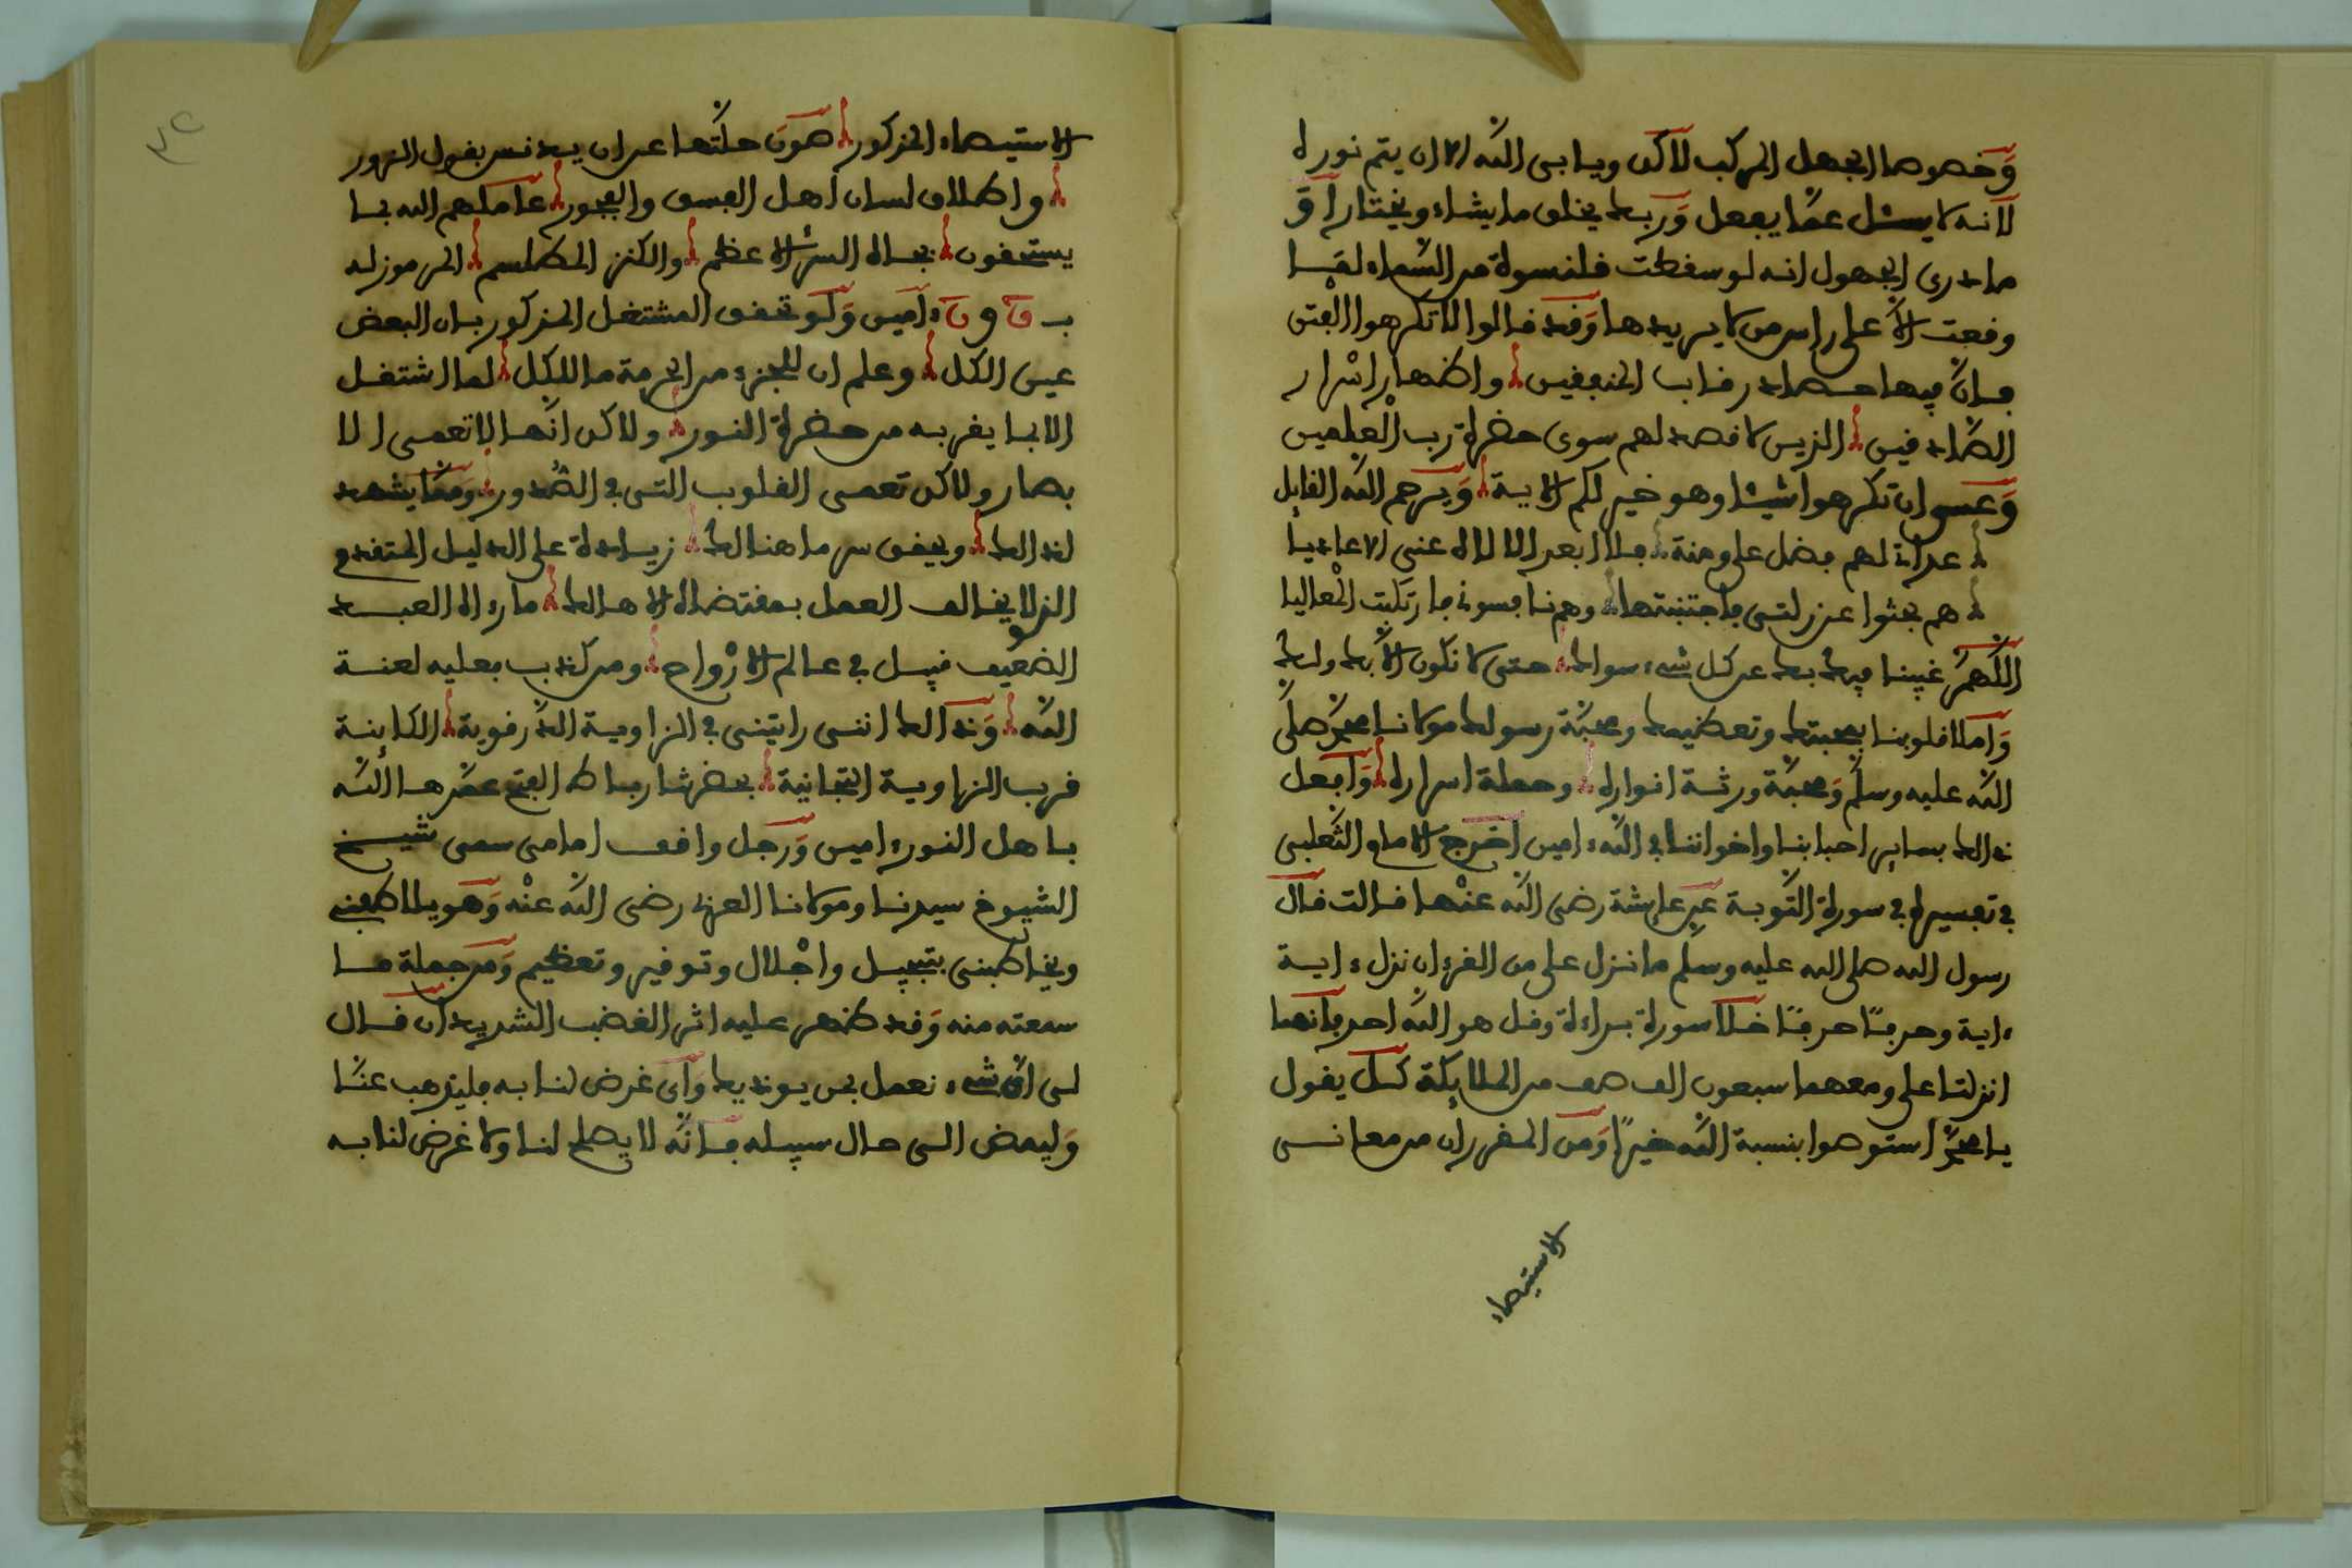 وخصوصا الجهل المركب لاكن ويابى الله الا ان يتم نوره
لانه لا يسئل عما يفعل وربك يخلق ما يشاء ويختار او
ما درى الجهول انه لو سقطت قلنسوة من السماء لما
وقعت الا على راس من لا يريدها وقد قالوا لا تكرهوا الفتن
فان فيها حصاد رقاب المنافقين واظهار اسرار
الصادقين الذين لا قصد لهم سوى حضرة رب العلمين
وعسى ان تكرهوا شيئا وهو خير لكم الاية ويرحم الله القايل
عداتي لهم فضل علي ومنة فلا ابعد الالاه عني الاعاديا
هم بحثوا عن زلتي فاجتنبتها وهم نافسوني فارتكبت المعاليا
اللهم غيبنا فيك بك عن كل شيء سواك حتى لا نكون الا بك ولك
واملا قلوبنا بمحبتك وتعظيمك ومحبة رسولك مولانا محمد صلى
الله عليه وسلم ومحبة ورثة انواره وحملة اسراره وافعل
ذالك بساير احبابنا واخواننا في الله ءامين اخرج الامام الثعلبي
في تفسيره في سورة التوبة عن عايشة رضي الله عنها قالت قال
رسول الله صلى الله عليه وسلم ما نزل علي من القرءان نزل ءاية
ءاية وحرفا حرفا خلا سورة براءة وقل هو الله احد فانهما
انزلتا علي ومعهما سبعون الف صف من الملايكة كل يقول
يا محمد استوصوا بنسبة الله خيرا ومن المقرر ان من معاني
الاستيصاء
الاستيصاء المذكور صون حلتها عن ان يدنس بقول الزور
واطلاق لسان اهل الفسق والفجور عاملهم الله بما
يستحقون بجاه السر الاعظم والكنز المطلسم المرموز له
ب ق و ن ءامين ولو تحقق المشتغل المذكور بان البعض
عين الكل وعلم ان للجزء من الحرمة ما للكل لما اشتغل
الا بما يقربه من حضرة النور ولاكن انها لا تعمى الا
بصار ولاكن تعمى القلوب التي في الصدور ومما يشهد
لذالك ويحقق سر ما هنالك زيادة على الدليل المتقدم
الذي لا يخالف العمل بمقتضاه الا هالك ما رءاه العبد
الضعيف قبل في عالم الارواح ومن كذب فعليه لعنة
الله وذالك انني رايتني في الزاوية الدرقوية الكاينة
قرب الزاوية التجانية بحضرتنا رباط الفتح عمرها الله
باهل النور ءامين ورجل واقف امامي سمى شيخ
الشيوخ سيدنا ومولانا العربي رضي الله عنه وهو يلاطفني
ويخاطبني بتبجيل واجلال وتوقير وتعظيم ومن جملة ما
سمعته منه وقد ظهر عليه اثر الغضب الشديد ان قال
لي اي شيء نعمل بمن يوذيك واي غرض لنا به فليذهب عنا
وليمض الى حال سبيله فانه لا يصلح لنا ولا غرض لنا به